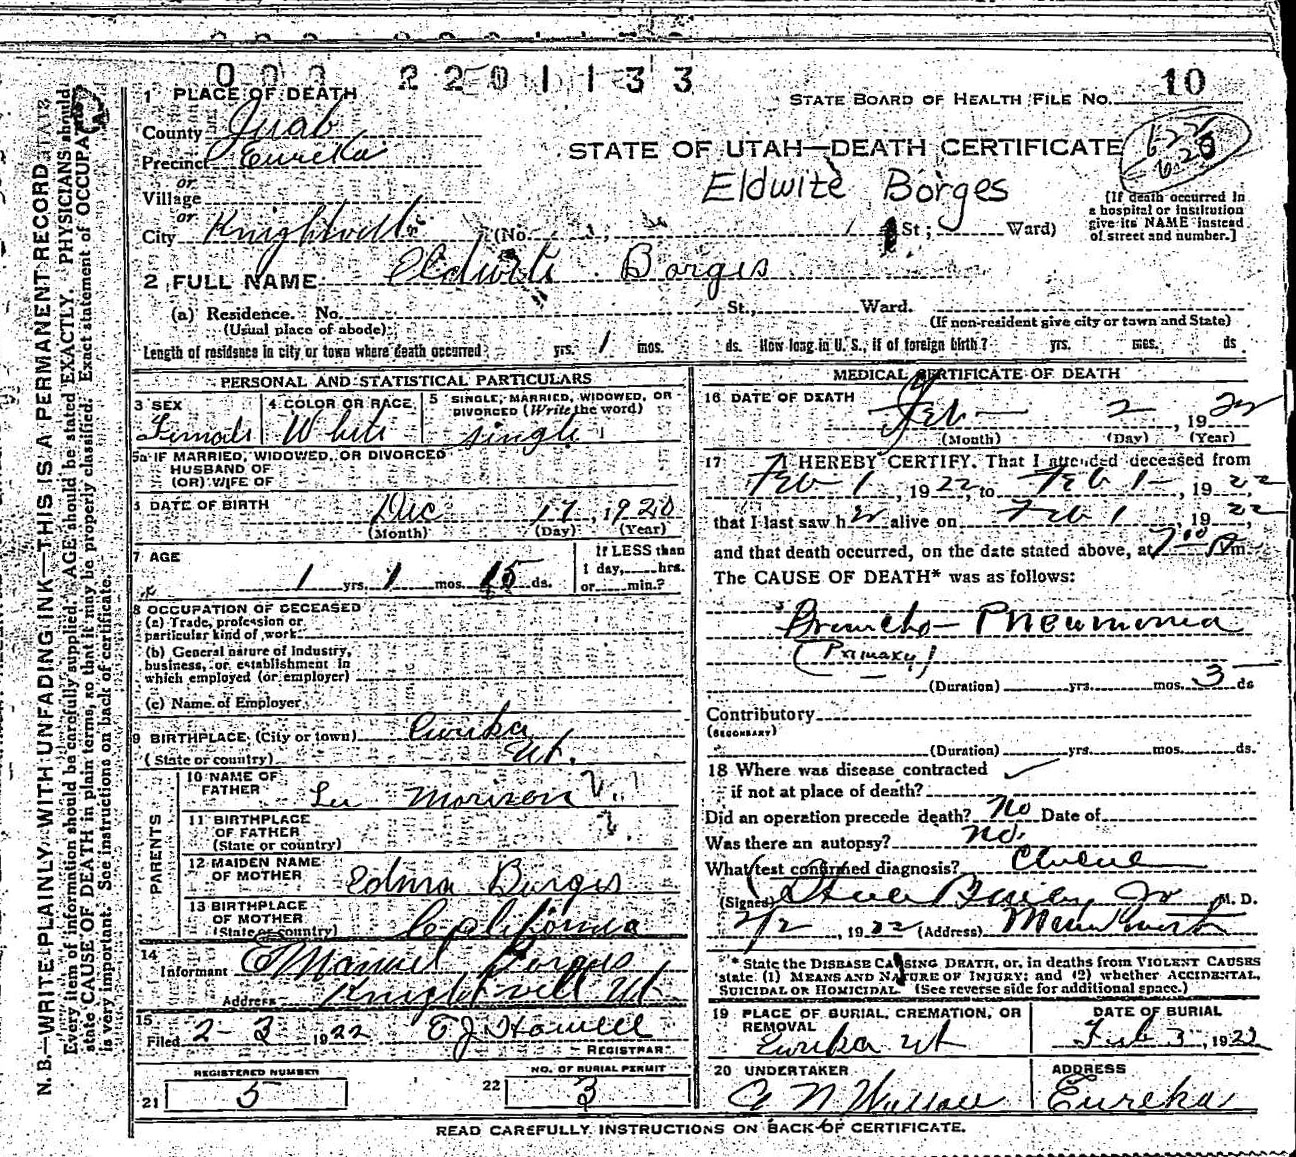 000 2201133
10
1 PLACE OF DEATH
STATE BOARD OF HEALTH FILE NO.
County Juab
Precinct Eureka
STATE OF UTAH—DEATH CERTIFICATE
or
Village
Eldwite Borges
or
City Knightville (No. St; Ward)
[If death occurred in
a hospital or institution
give its NAME instead
of street and number.]
2 FULL NAME Eldwite Borges
(a) Residence. No. St., Ward.
(Usual place of abode)
(If non-resident give city or town and State)
Length of residence in city or town where death occurred yrs. 1 mos. ds. How long in U. S., if of foreign birth? yrs. mos. ds
PERSONAL AND STATISTICAL PARTICULARS
3 SEX
Female
4 COLOR OR RACE
White
5 SINGLE, MARRIED, WIDOWED, OR
DIVORCED (Write the word)
single
5a IF MARRIED, WIDOWED, OR DIVORCED
HUSBAND OF
(OR) WIFE OF
DATE OF BIRTH Dec 17, 1920
(Month) (Day) (Year)
7 AGE
1 yrs. 1 mos. 15 ds.
If LESS than
1 day, hrs.
or min.?
8 OCCUPATION OF DECEASED
(a) Trade, profession or
particular kind of work
(b) General nature of industry,
business, or establishment in
which employed (or employer)
(c) Name of Employer
9 BIRTHPLACE (City or town) Eureka
(State or country) Ut.
PARENTS
10 NAME OF
FATHER Lee Morizon ?
11 BIRTHPLACE
OF FATHER
(State or country) ?
12 MAIDEN NAME
OF MOTHER Edma Borges
13 BIRTHPLACE
OF MOTHER
(State or country) California
14
Informant Manuel Borges
Address Knightvill Ut
15
Filed 2-3 1922 E J Howell
REGISTRAR
REGISTERED NUMBER
21 5
NO. OF BURIAL PERMIT
22 3
MEDICAL CERTIFICATE OF DEATH
16 DATE OF DEATH
Feb 2, 1922
(Month) (Day) (Year)
17 I HEREBY CERTIFY. That I attended deceased from
Feb 1, 1922, to Feb 1, 1922
that I last saw her alive on Feb 1, 1922,
and that death occurred, on the date stated above, at 7 00 A m.
The CAUSE OF DEATH* was as follows:
Broncho-Pneumonia
(Primary)
(Duration) yrs. mos. 3 ds
Contributory
(SECONDARY)
(Duration) yrs. mos. ds.
18 Where was disease contracted
if not at place of death?
Did an operation precede death? No Date of
Was there an autopsy? No.
What test confirmed diagnosis?
(Signed) Steele Bailey Jr M. D.
2/2, 1922 (Address)
* State the DISEASE CAUSING DEATH, or, in deaths from VIOLENT CAUSES
state (1) MEANS AND NATURE OF INJURY; and (2) whether ACCIDENTAL,
SUICIDAL OR HOMICIDAL (See reverse side for additional space.)
19 PLACE OF BURIAL, CREMATION, OR
REMOVAL
Eureka Ut
DATE OF BURIAL
Feb 3, 1922
20 UNDERTAKER
ADDRESS
Eureka
READ CAREFULLY INSTRUCTIONS ON BACK OF CERTIFICATE.
N. B.—WRITE PLAINLY WITH UNFADING INK—THIS IS A PERMANENT RECORD
Every item of information should be carefully supplied. AGE should be stated EXACTLY. PHYSICIANS should
state CAUSE OF DEATH in plain terms, so that it may be properly classified. Exact statement of OCCUPA
is very important. See instructions on back of certificate.